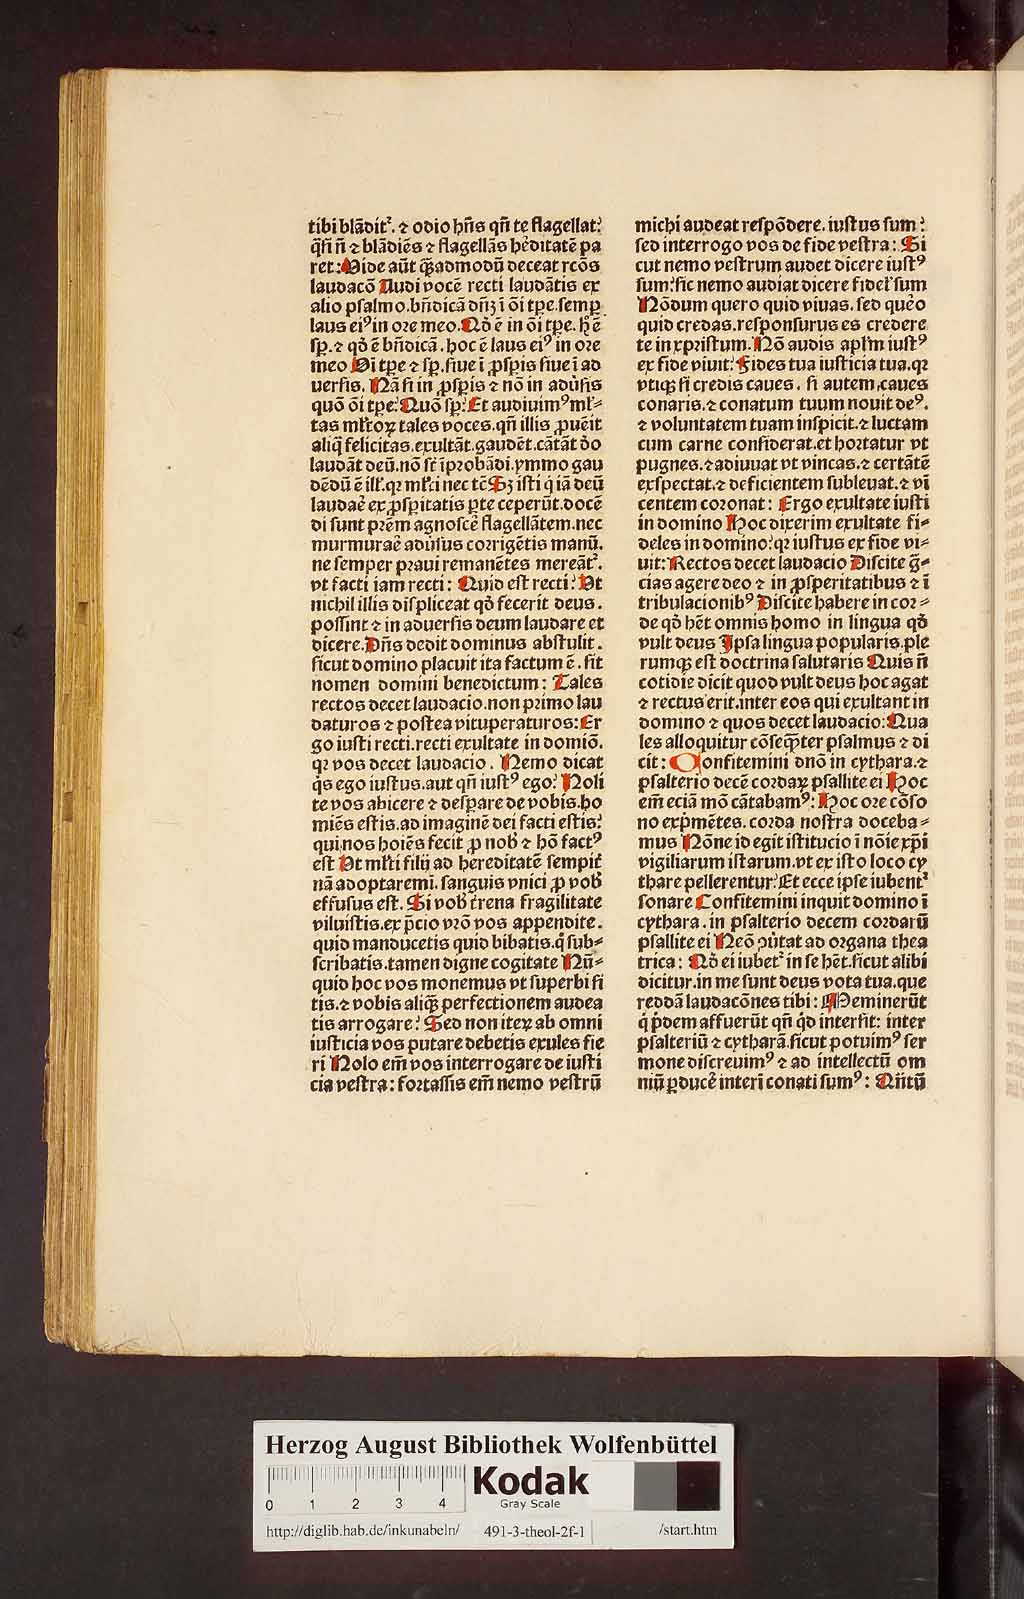 tibi blãdit᷑. ⁊ odio hñs qñ te flagellat:
q̃si ñ ⁊ blãdiẽs ⁊ flagellãs hẽditatẽ pa
ret: Vide aũt q̃admodũ deceat rcõs
laudacõ Audi vocẽ recti laudãtis ex
alio psalmo. bñdicã dñʒ ĩ õi tp̃e. semꝑ
laus eiꝰ in ore meo. Qḋ ẽ in õi tp̃e. hͦ ẽ
sꝑ. ⁊ qḋ ẽ bñdicã. hoc ẽ laus eiꝰ in ore
meo Oi tp̃e ⁊ sꝑ. siue ĩ ꝓsꝑis siue ĩ ad
uersis. Nã si in ꝓsꝑis ⁊ nõ in adũsis
quõ õi tp̃e: Quõ sꝑ: Et audiuimꝰ ml̃-
tas ml̃toꝝ tales voces. qñ illis ꝓueĩt
aliq̃ felicitas. exultãt. gaudẽt. cãtãt ḋo
laudãt deũ. nõ sẽ ĩprobãdi. ymmo gau
dẽdũ ẽ ill̃. qꝛ ml̃i nec tẽ Sʒ isti q̇ iã deũ
laudaẽ ex ꝓsꝑitatis ꝑte ceperũt. docẽ
di sunt pr̃em agnoscẽ flagellãtem. nec
murmuraẽ adũsus corrigẽtis manũ.
ne semper praui remanẽtes mereãt᷑.
vt facti iam recti: Quid est recti: Vt
nichil illis displiceat qḋ fecerit deus.
possint ⁊ in aduersis deum laudare et
dicere. Dñs dedit dominus abstulit.
sicut domino placuit ita factum ẽ. sit
nomen domini benedictum: Tales
rectos decet laudacio. non primo lau
daturos ⁊ postea vituperaturos: Er
go iusti recti. recti exultate in domiõ.
qꝛ vos decet laudacio. Nemo dicat
q̇s ego iustus. aut qñ iustꝰ ego: Noli
te vos abicere ⁊ desꝑare de vobis. ho
miẽs estis. ad imaginẽ dei facti estis:
qui nos hoiẽs fecit ꝓ nob̃ ⁊ hõ factꝰ
est Vt ml̃ti filij ad hereditatẽ sempit̃
nã adoptaremĩ. sanguis vnici ꝓ vob̃
effusus est. Si vob̃ t̃rena fragilitate
viluistis. ex p̃cio vr̃o vos appendite.
quid manducetis quid bibatis. q̇ sub-
scribatis. tamen digne cogitate Nũ-
quid hoc vos monemus vt superbi si
tis. ⁊ vobis aliq̃ꝫ perfectionem audea
tis arrogare: Sed non iteꝝ ab omni
iusticia vos putare debetis exules fie
ri Nolo em̃ vos interrogare de iusti
cia vestra: fortassis em̃ nemo vestrũ
michi audeat respõdere. iustus sum:
sed interrogo vos de fide vestra: Si
cut nemo vestrum audet dicere iustꝰ
sum: sic nemo audiat dicere fidel̃ sum
Nõdum quero quid viuas. sed quẽo
quid credas. responsurus es credere
te in xpristum. Nõ audis apl̃m iustꝰ
ex fide viuit: Fides tua iusticia tua. qꝛ
vtiqꝫ si credis caues. si autem caues
conaris. ⁊ conatum tuum nouit deꝰ.
⁊ voluntatem tuam inspicit. ⁊ luctam
cum carne considerat. et hortatur vt
pugnes. ⁊ adiuuat vt vincas. ⁊ certãtẽ
exspectat. ⁊ deficientem subleuat. ⁊ vĩ
centem coronat: Ergo exultate iusti
in domino Hoc dixerim exultate fi-
deles in domino: qꝛ iustus ex fide vi-
uit: Rectos decet laudacio Discite g̃-
cias agere deo ⁊ in ꝓsperitatibus ⁊ ĩ
tribulacionibꝰ Discite habere in cor-
de qḋ hẽt omnis homo in lingua qḋ
vult deus Ipsa lingua popularis. ple
rumqꝫ est doctrina salutaris Quis ñ
cotidie dicit quod vult deus hoc agat
⁊ rectus erit. inter eos qui exultant in
domino ⁊ quos decet laudacio: Qua
les alloquitur cõseq̃ꝫter psalmus ⁊ di
cit: Confitemini dnõ in cythara. ⁊
psalterio decẽ cordaꝝ psallite ei Hoc
em̃ eciã mõ cãtabamꝰ: Hoc ore cõso
no exp̃mẽtes. corda nostra doceba-
mus Nõne id egit istitucio ĩ nõie xp̃i
vigiliarum istarum. vt ex isto loco cy
thare pellerentur: Et ecce ipse iubent᷑
sonare Confitemini inquit domino ĩ
cythara. in psalterio decem cordarũ
psallite ei Neõ ꝯũtat ad organa thea
trica: Qḋ ei iubet᷑ in se hẽt. sicut alibi
dicitur. in me sunt deus vota tua. que
reddã laudacõnes tibi: Meminerũt
q̇ p̃dem affuerũt qñ q̇d intersit: inter
psalteriũ ⁊ cytharã. sicut potuimꝰ ser
mone discreuimꝰ ⁊ ad intellectũ om
niũ ꝑducẽ interĩ conati sumꝰ: Nũtũ
Herzog August Bibliothek Wolfenbüttel
0 1 2 3 4
Kodak
Gray Scale
http://diglib.hab.de/inkunabeln/ 491-3-theol-2f-1 /start.htm